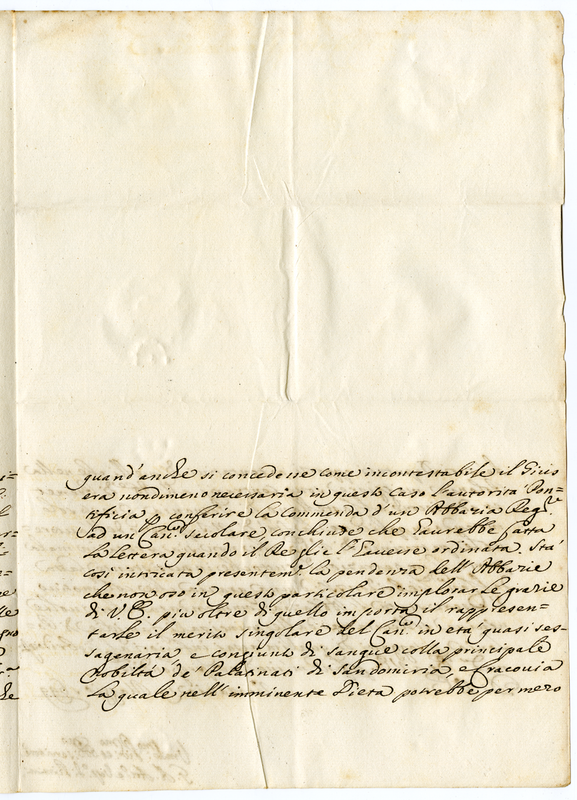 quand'anche si concedesse come incontestabile il Gius
era nondimeno necessaria in questo caso l'autorità Pon=
tificia p conferire la Commenda d'un Abbazia Reg.re
ad un Can.co secolare, conchiude che haurebbe fatta
la lettera quando il Re glie l'hauesse ordinata. Stà
così intricata presentem.te la pendenza dell'Abbazie
che non oso in questo particolare implorar le grazie
di V. E. più oltre di quello importa il rappresen=
tarle il merito singolare del Can.co in età quasi ses=
sagenaria e congiunto di sangue colla principale
Nobiltà de' Palatinati di Sandomiria e Cracouia
la quale nell'imminente Dieta potrebbe per mezo